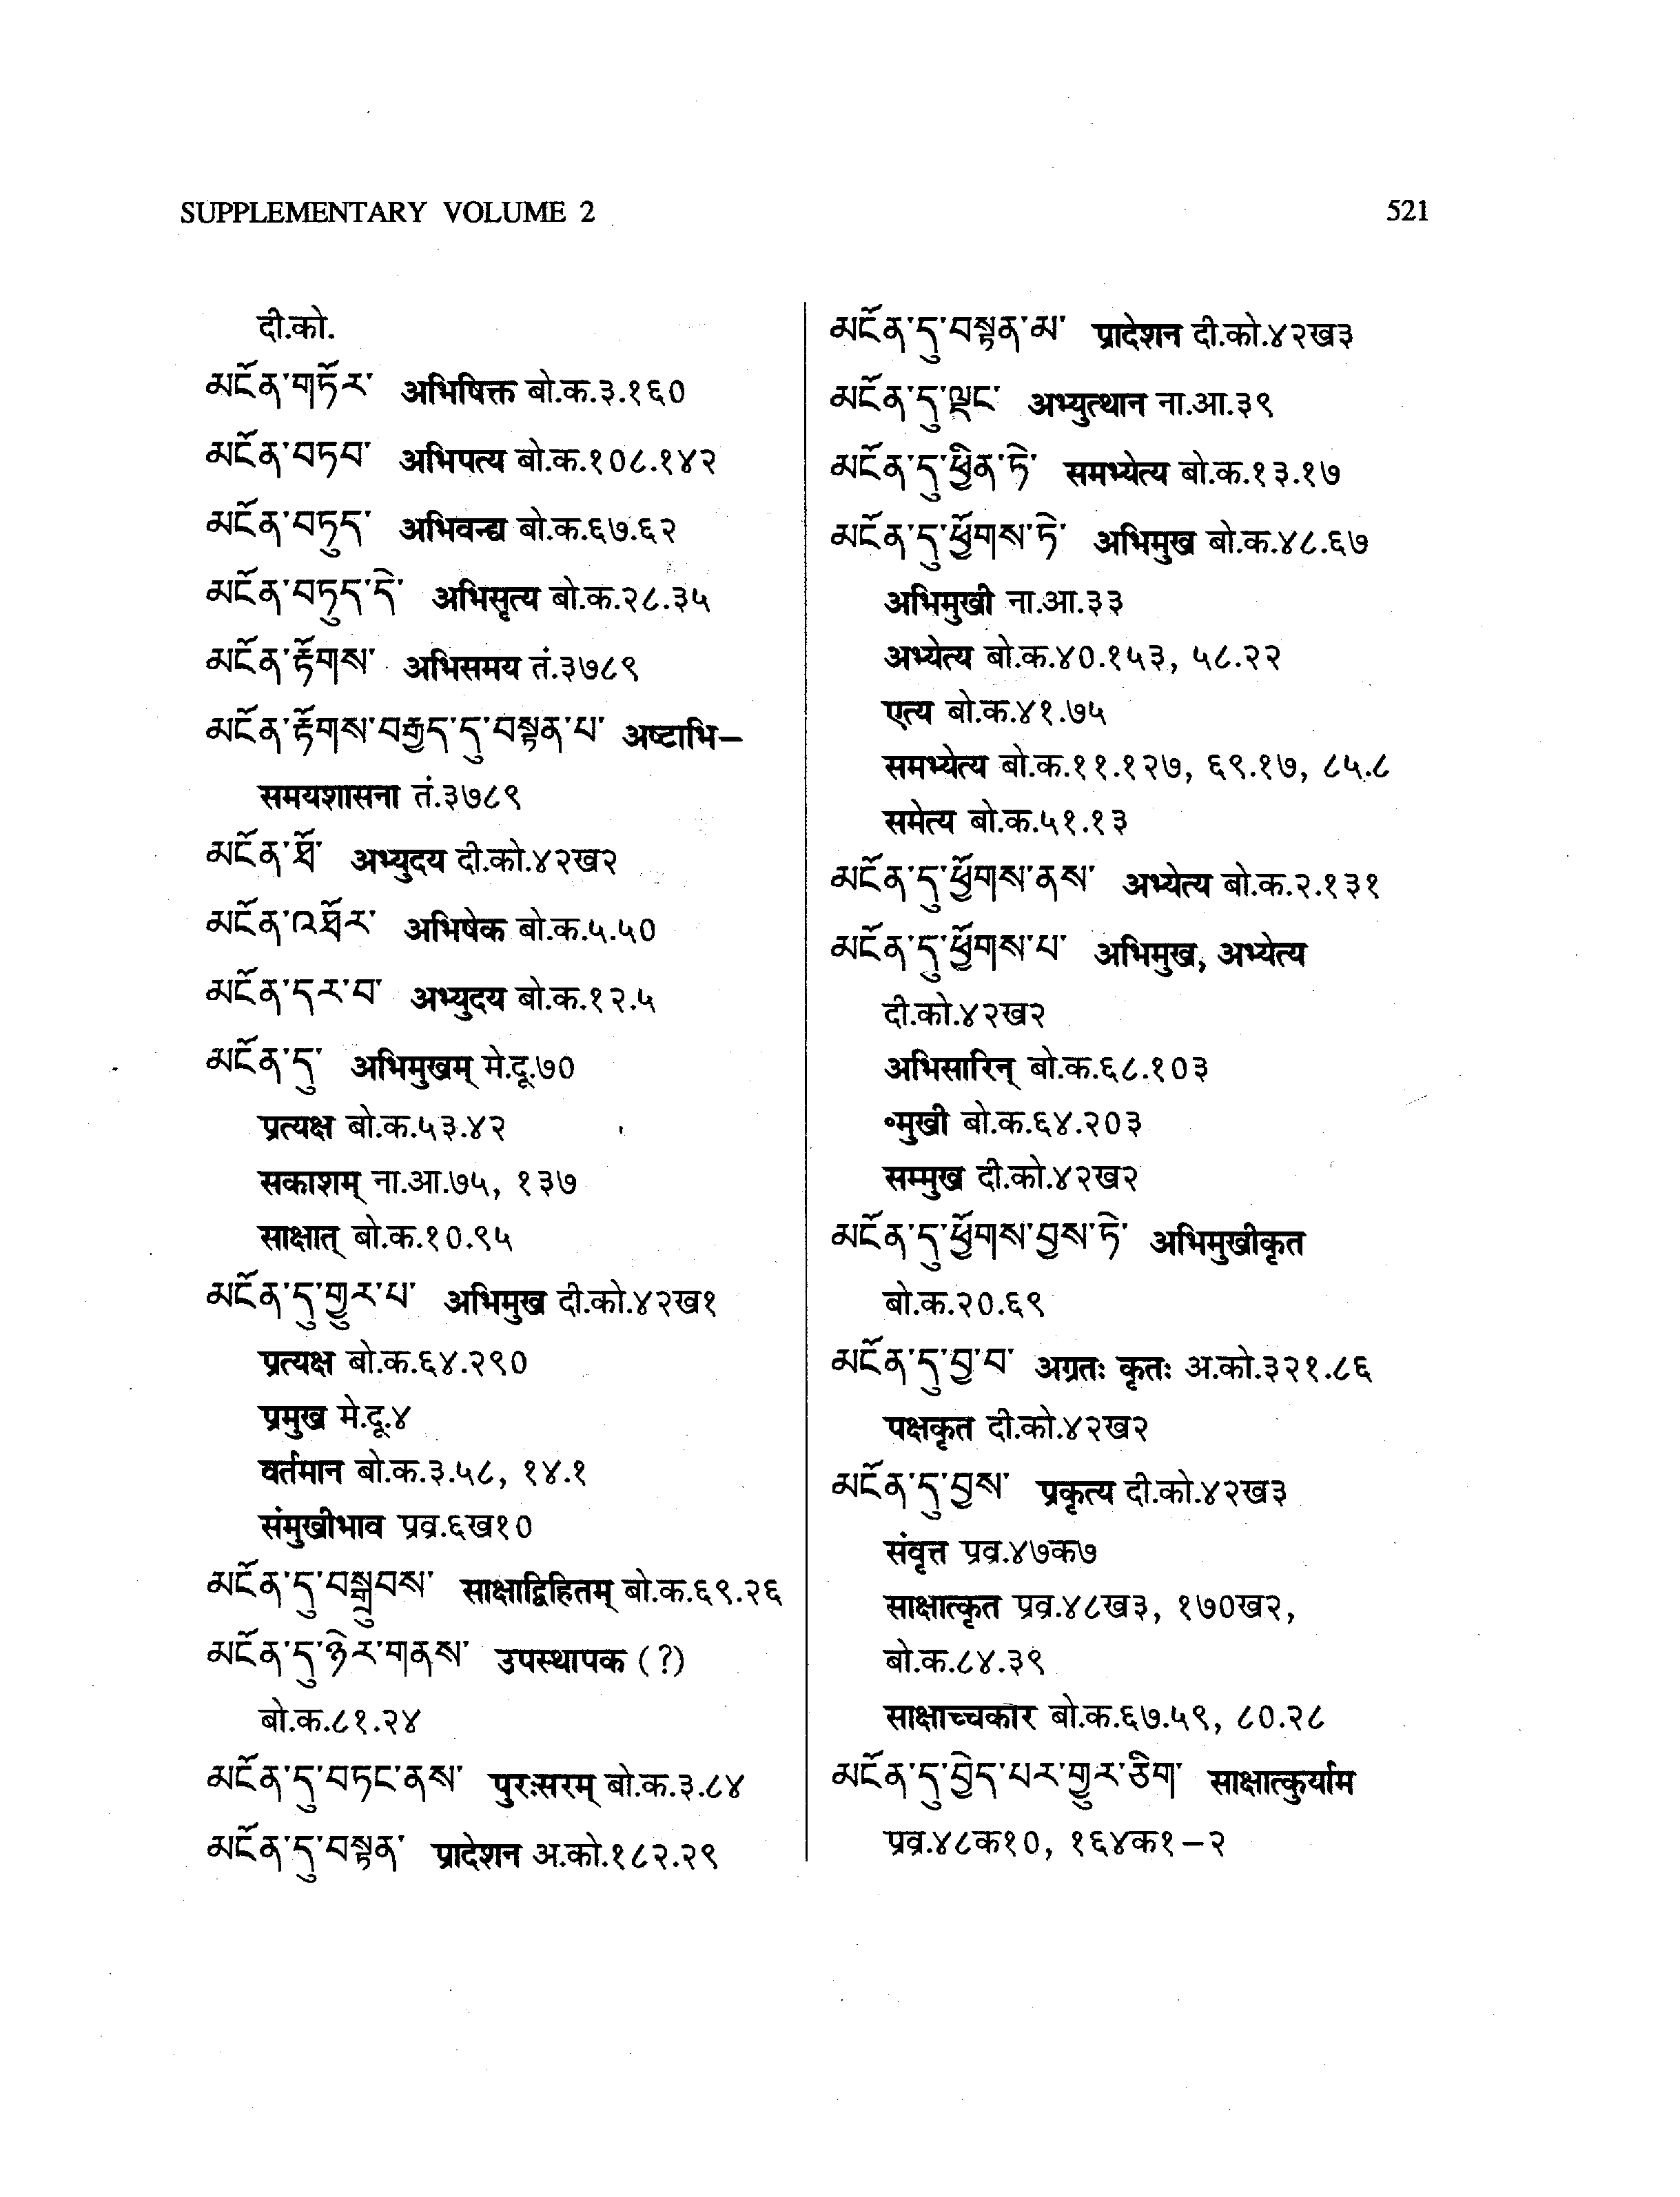 SUPPLEMENTARY VOLUME 2
521
दी.को.
མངོན་གཏོར་ अभिषिक्त बो.क.३.१६०
མངོན་བཏབ་ अभिपत्य बो.क.१०८.१४२
མངོན་བཏུད་ अभिवन्द्य बो.क.६७.६२
མངོན་བཏུད་དེ་ अभिसृत्य बो.क.२८.३५
མངོན་རྟོགས་ अभिसमय तं.३७८९
མངོན་རྟོགས་བརྒྱད་དུ་བསྟན་པ་ अष्टाभि–
समयशासना तं.३७८९
མངོན་ཐོ་ अभ्युदय दी.को.४२ख२
མངོན་འཐོར་ अभिषेक बो.क.५.५०
མངོན་དར་བ་ अभ्युदय बो.क.१२.५
མངོན་དུ་ अभिमुखम् मे.दू.७०
प्रत्यक्ष बो.क.५३.४२
सकाशम् ना.आ.७५, १३७
साक्षात् बो.क.१०.९५
མངོན་དུ་གྱུར་པ་ अभिमुख दी.को.४२ख१
प्रत्यक्ष बो.क.६४.२९०
प्रमुख मे.दू.४
वर्तमान बो.क.३.५८, १४.१
संमुखीभाव प्रव्र.६ख१०
མངོན་དུ་བསྒྲུབས་ साक्षाद्विहितम् बो.क.६९.२६
མངོན་དུ་ཉེར་གནས་ उपस्थापक (?)
बो.क.८१.२४
མངོན་དུ་བཏང་ནས་ पुरःसरम् बो.क.३.८४
མངོན་དུ་བསྟན་ प्रादेशन अ.को.१८२.२९
མངོན་དུ་བསྟན་མ་ प्रादेशन दी.को.४२ख३
མངོན་དུ་ལྡང་ अभ्युत्थान ना.आ.३९
མངོན་དུ་ཕྱིན་ཏེ་ समभ्येत्य बो.क.१३.१७
མངོན་དུ་ཕྱོགས་ཏེ་ अभिमुख बो.क.४८.६७
अभिमुखी ना.आ.३३
अभ्येत्य बो.क.४०.१५३, ५८.२२
एत्य बो.क.४१.७५
समभ्येत्य बो.क.११.१२७, ६९.१७, ८५.८
समेत्य बो.क.५१.१३
མངོན་དུ་ཕྱོགས་ནས་ अभ्येत्य बो.क.२.१३१
མངོན་དུ་ཕྱོགས་པ་ अभिमुख, अभ्येत्य
दी.को.४२ख२
अभिसारिन् बो.क.६८.१०३
॰मुखी बो.क.६४.२०३
सम्मुख दी.को.४२ख२
མངོན་དུ་ཕྱོགས་བྱས་ཏེ་ अभिमुखीकृत
बो.क.२०.६९
མངོན་དུ་བྱ་བ་ अग्रतः कृतः अ.को.३२१.८६
पक्षकृत दी.को.४२ख२
མངོན་དུ་བྱས་ प्रकृत्य दी.को.४२ख३
संवृत्त प्रव्र.४७क७
साक्षात्कृत प्रव्र.४८ख३, १७०ख२,
बो.क.८४.३९
साक्षाच्चकार बो.क.६७.५९, ८०.२८
མངོན་དུ་བྱེད་པར་གྱུར་ཅིག་ साक्षात्कुर्याम
प्रव्र.४८क१०, १६४क१–२